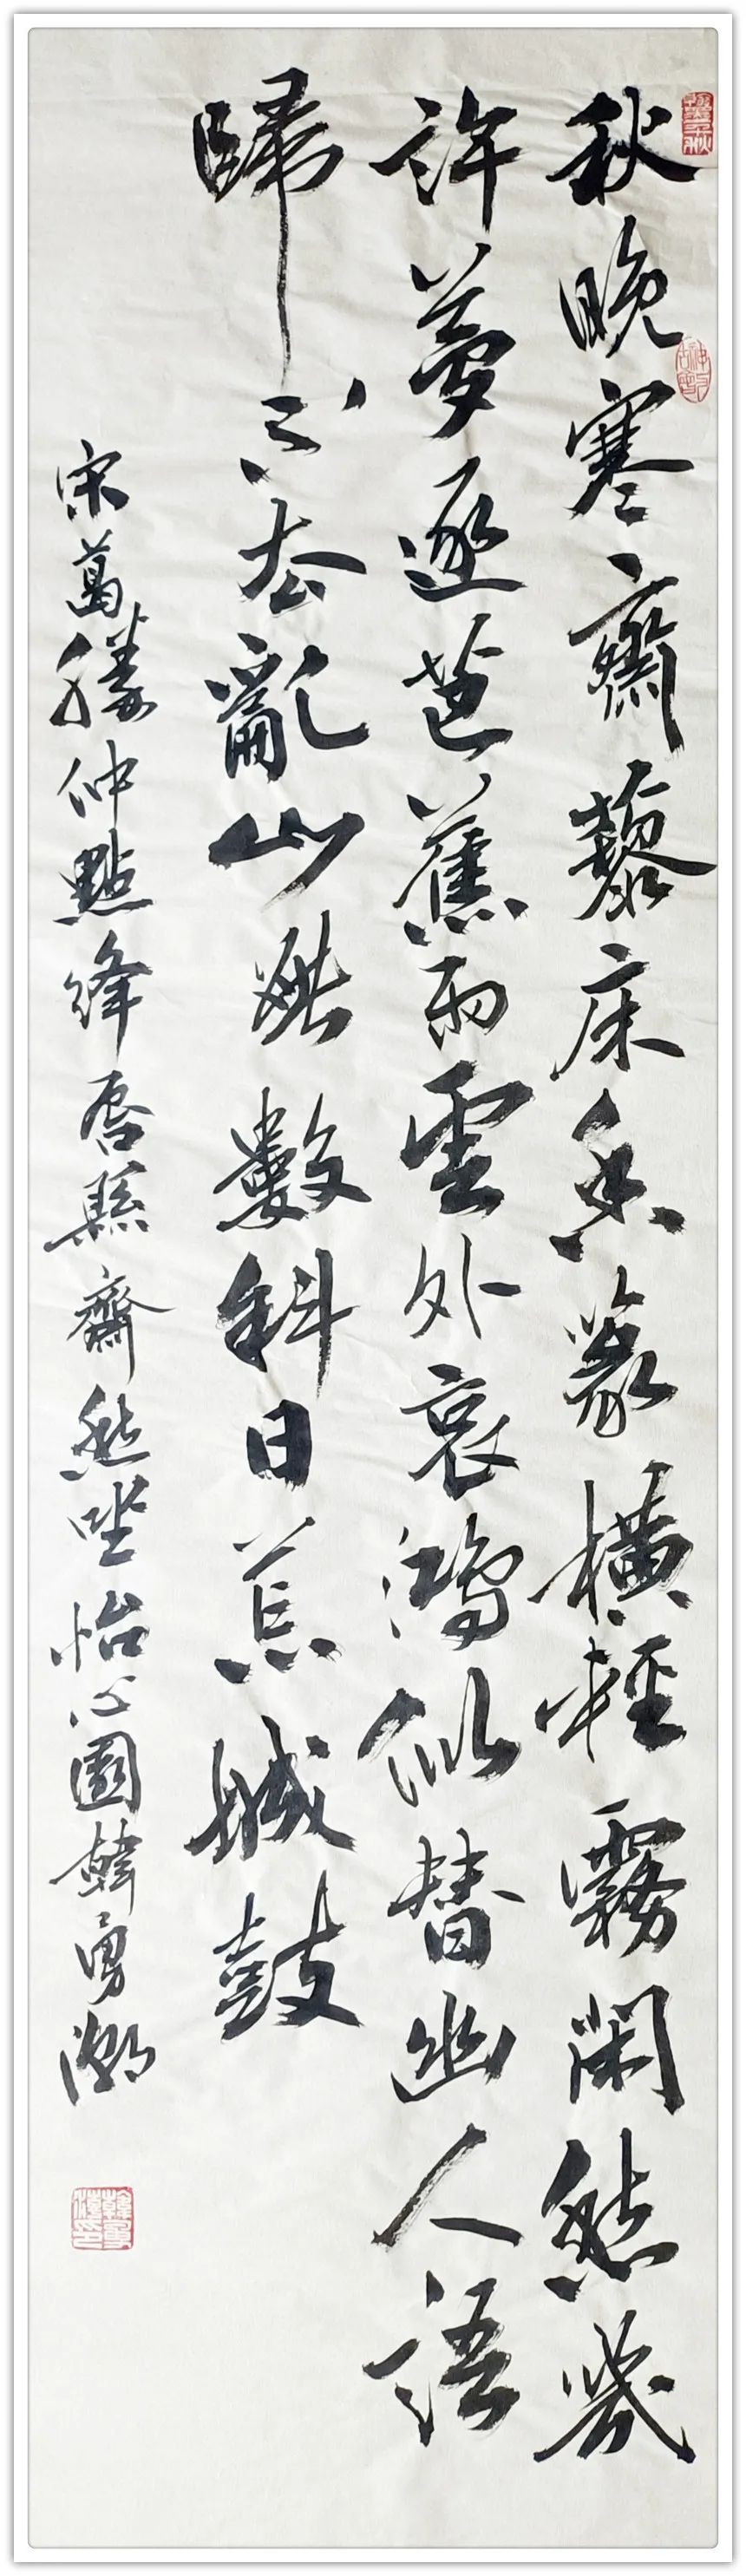 秋晚寒齋藜床香篆橫輕霧閑愁幾
許夢逐芭蕉雨雲外哀鴻似替幽人語
歸不去亂山無數斜日荒城鼓
宋葛勝仲點絳唇縣齋愁坐怡心園韓勇潮